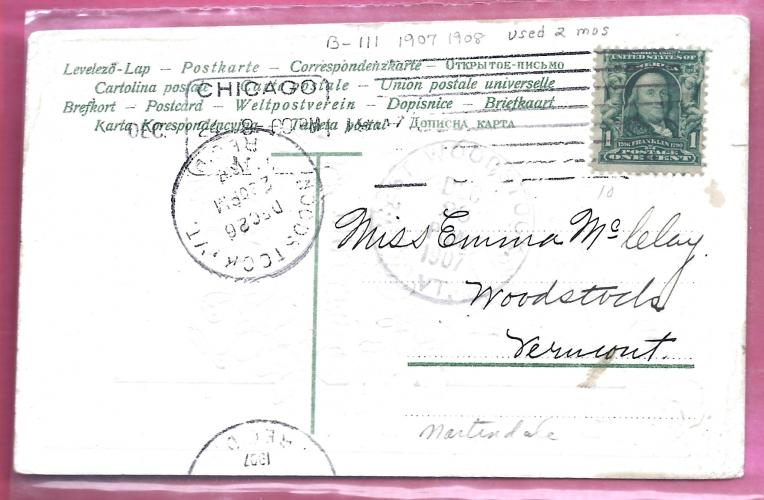 B-111 1907 1908 used 2 mos
Levelező-Lap – Postkarte – Correspondenzkarte – Открытое-письмо
Cartolina postale – Carte postale – Union postale universelle
Brefkort – Postcard – Weltpostverein – Dopisnice – Briefkaart
Karta Korespondencyjna – Tarjeta postal – Дописна карта
CHICAGO
DEC.
UNITED STATES OF
1 1706 FRANKLIN 1790 1
POSTAGE
ONE CENT
10
WOODSTOCK, VT.
DEC 26
PM
REC'D
WOODSTOCK
1907
Miss Emma McClay.
Woodstock
Vermont.
Martindale
REC'D
1907